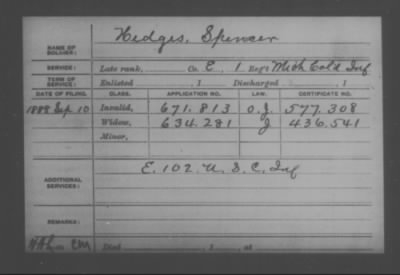 NAME OF SOLDIER: Hedges, Spencer
SERVICE: Late rank, Co. E, 1 Reg't Mich Cold Inf
TERM OF SERVICE: Enlisted , 1 Discharged , 1
DATE OF FILING. CLASS. APPLICATION NO. LAW. CERTIFICATE NO.
1888 Sep 10 Invalid, 671.813 O.J. 577.308
Widow, 634.281 J 436.541
Minor,
ADDITIONAL SERVICES: E. 102 U. S. C. Inf
REMARKS:
CM Died , 1 , at